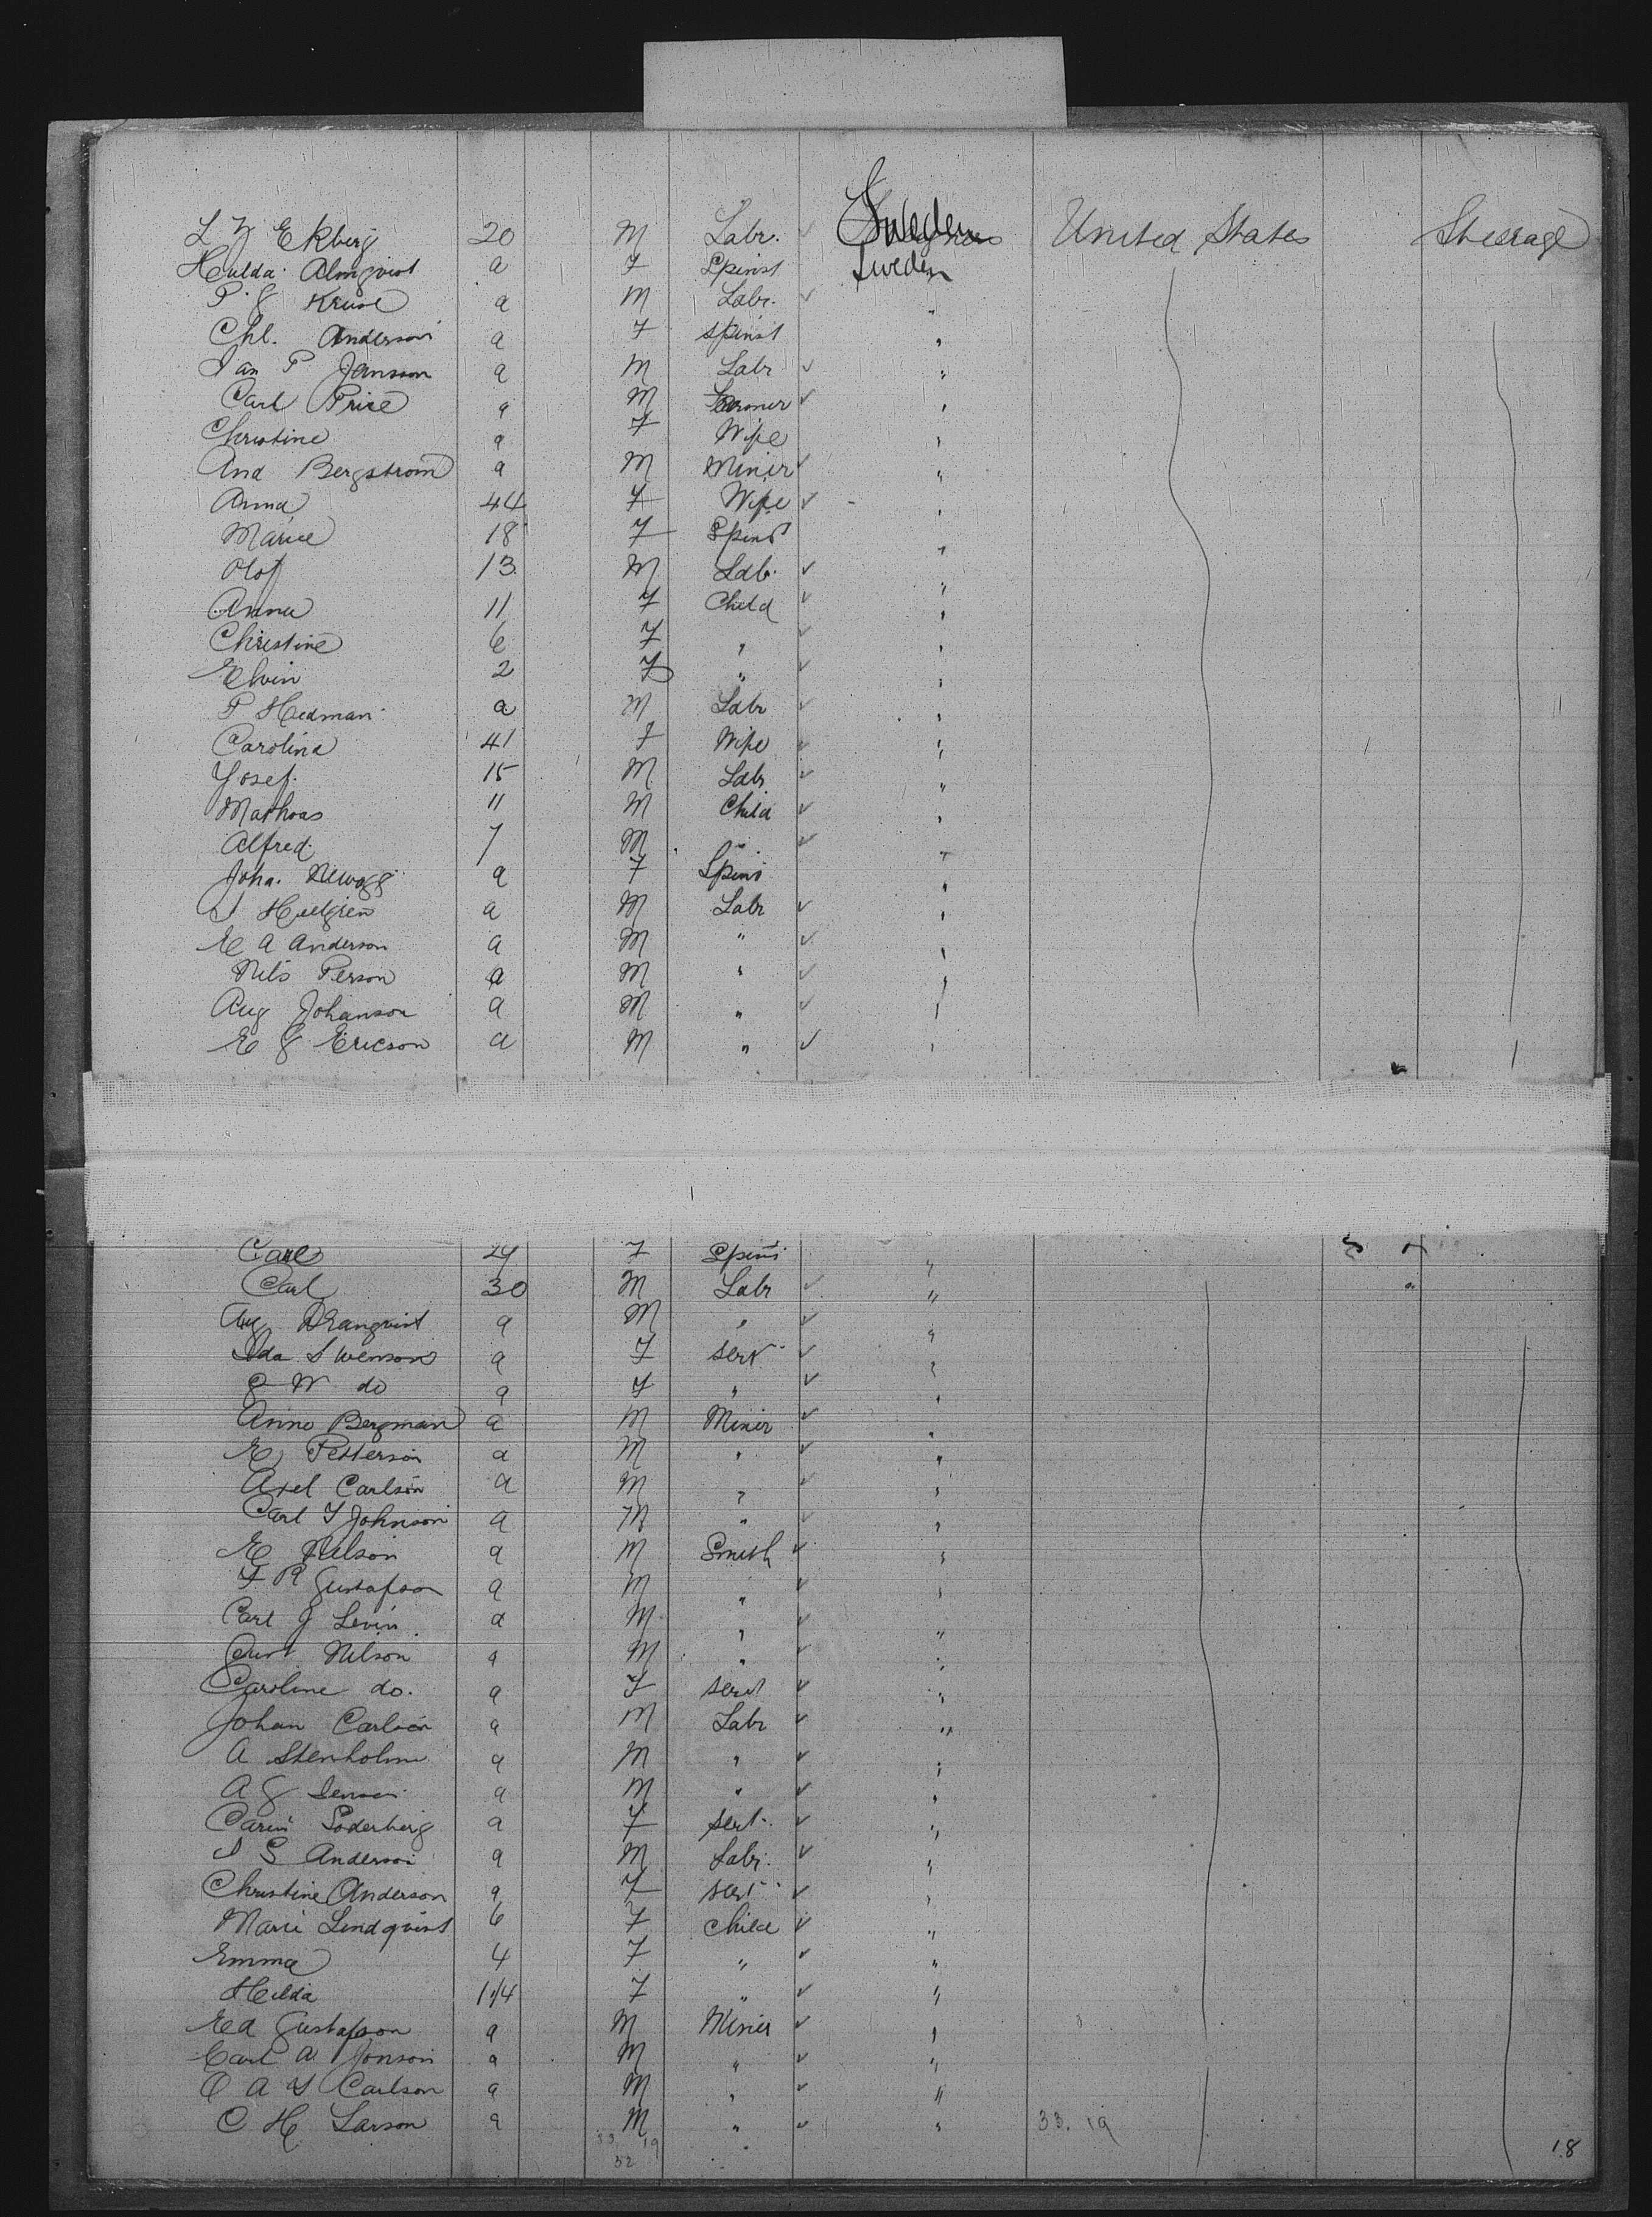 L Ekberg 20 M Labr. Sweden United States Steerage
Hulda Almqvist a F Spinst Sweden
P. J Kruse a M Labr. "
Chl. Anderson a F Spinst "
Jan P Jansson a M Labr "
Carl Price a M "
Christine a F Wife "
And Bergstrom a M Miner "
Anna 44 F Wife "
Marie 18 F Spinst "
Olof 13 M Lab. "
Anna 11 F Child "
Christine 6 F " "
Elvin 2 F " "
P Hedman a M Labr "
Carolina 41 F Wife "
Josef. 15 M Labr "
Mathias 11 M Child "
Alfred. 7 M " "
Joha. a F Spins "
J Hultgren a M Labr "
E A Anderson a M " "
Nils Person a M " "
Aug Johanson a M " "
E J Ericson a M " "
Carl 24 F Spins "
Carl 30 M Labr " "
Aug a M " "
Ida Swenson a F serv "
J W do a F " "
Anna Bergman a M Miner "
E Petterson a M " "
Axel Carlson a M " "
Carl J Johnson a M " "
E Nilson a M Smith "
F R Gustafson a M " "
Carl J Levin a M " "
Nilson a M " "
Caroline do. a F servt "
Johan Carlson a M Labr "
A Stenholm a M " "
A J a M " "
Carin Soderberg a F servt. "
J S Anderson a M Labr. "
Christine Anderson a F servt "
Marie Lindqvist 6 F Child "
Emma 4 F " "
Hilda 1 1/4 F " "
Ed Gustafson a M Miner "
Carl A Jonson a M " "
C A F Carlson a M " "
C H Larson a M " " 33. 19
33 19
32
18